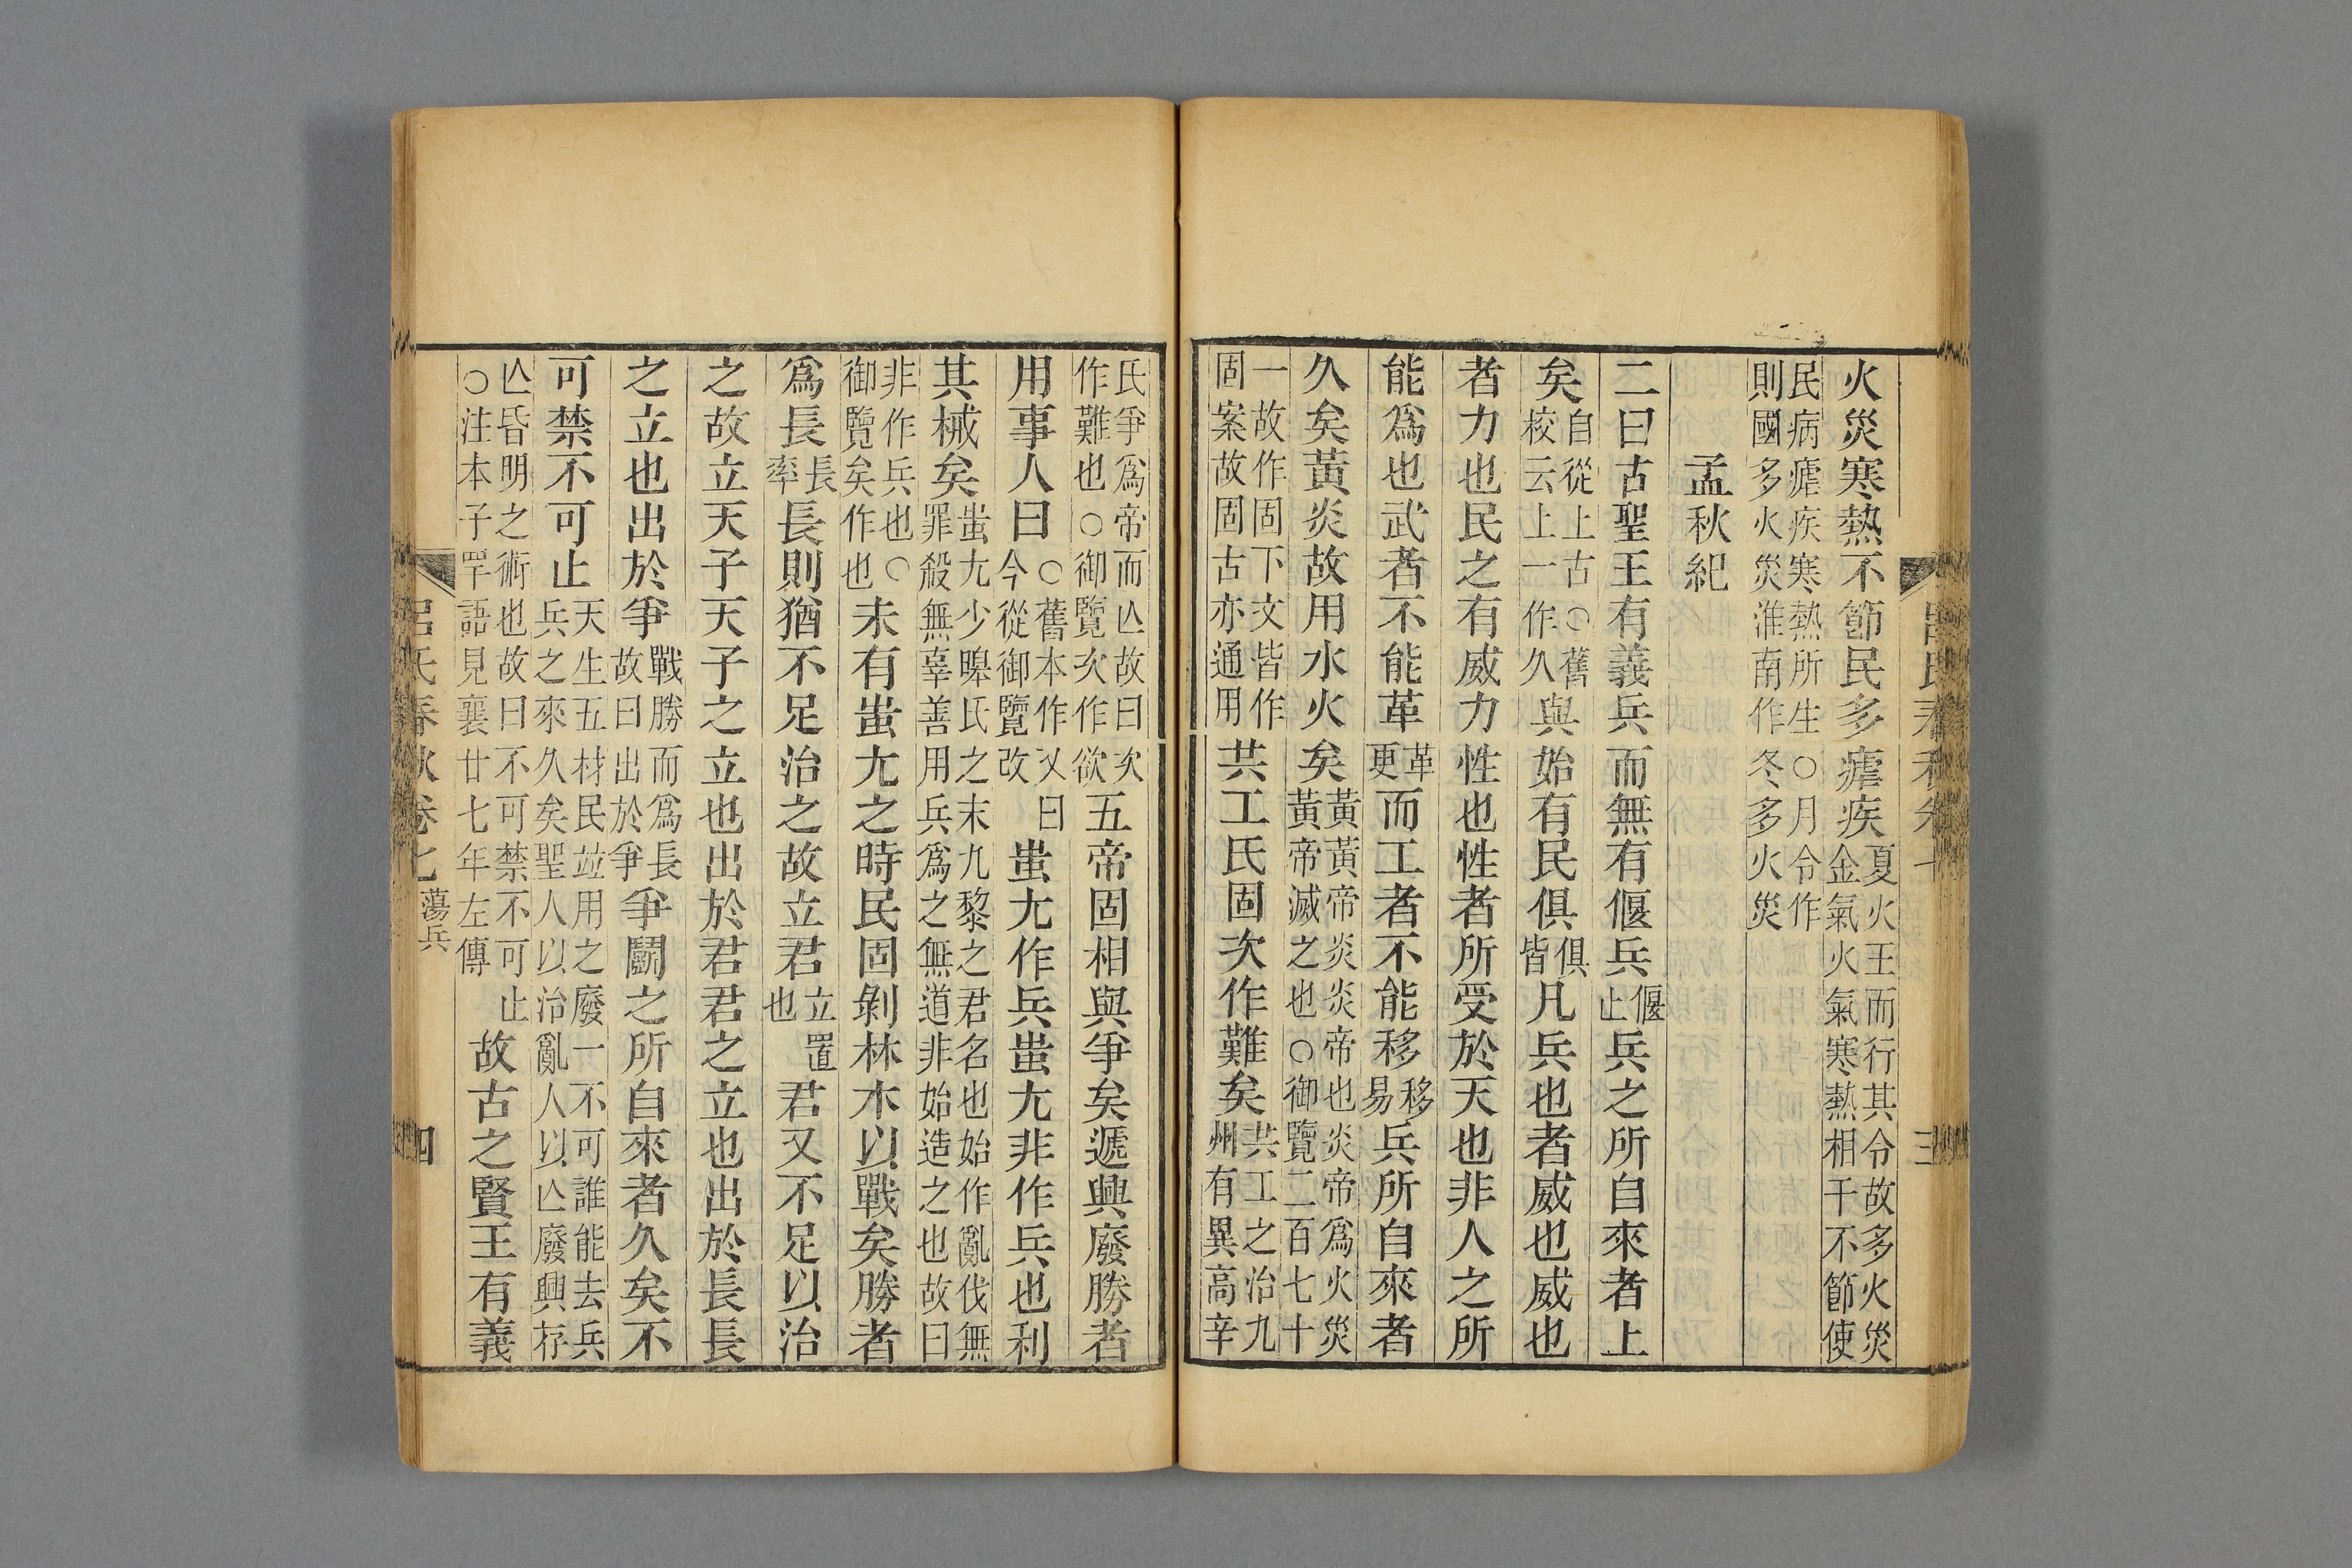 火災寒熱不節民多瘧疾夏火王而行其令故多火災金氣火氣寒熱相干不節使
民病瘧疾寒熱所生○月令作則國多火災淮南作冬多火災
孟秋紀
二曰古聖王有義兵而無有偃兵偃止兵之所自來者上
矣自從上古○舊校云上一作久與始有民俱俱皆凡兵也者威也威也
者力也民之有威力性也性者所受於天也非人之所
能爲也武者不能革革更而工者不能移移易兵所自來者
久矣黃炎故用水火矣黃黃帝炎炎帝也炎帝爲火災黃帝滅之也○御覽二百七十
一故作固下文皆作固案故固古亦通用共工氏固次作難矣共工之治九州有異高辛
氏爭爲帝而亾故曰次作難也○御覽次作欲五帝固相與爭矣遞興廢勝者
用事人曰○舊本作又曰今從御覽改蚩尤作兵蚩尤非作兵也利
其械矣蚩尤少皞氏之末九黎之君名也始作亂伐無罪殺無辜善用兵爲之無道非始造之也故曰
非作兵也○御覽矣作也未有蚩尤之時民固剝林木以戰矣勝者
爲長長率長則猶不足治之故立君立置也君又不足以治
之故立天子天子之立也出於君君之立也出於長長
之立也出於爭戰勝而爲長故曰出於爭爭鬭之所自來者久矣不
可禁不可止天生五材民並用之廢一不可誰能去兵兵之來久矣聖人以治亂人以亾廢興存
亾昏明之術也故曰不可禁不可止○注本子罕語見襄廿七年左傳故古之賢王有義
呂氏春秋卷七蕩兵 四